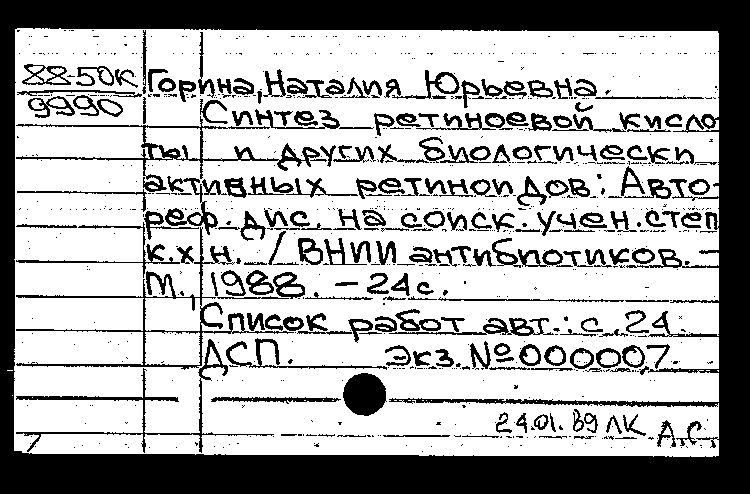 88-50К
9990
Горина, Наталия Юрьевна.
Синтез ретиноевой кисло
ты и других биологически
активных ретиноидов: Авто-
реф. дис. на соиск. учен. степ
к.х.н. / ВНИИ антибиотиков. –
М., 1988. – 24с.
Список работ авт.: с.24.
ДСП. Экз. № 000007.
24.01.89 ЛК А.С.